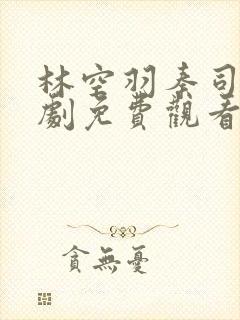 林空羽奏司
劇免費觀看
貪無憂